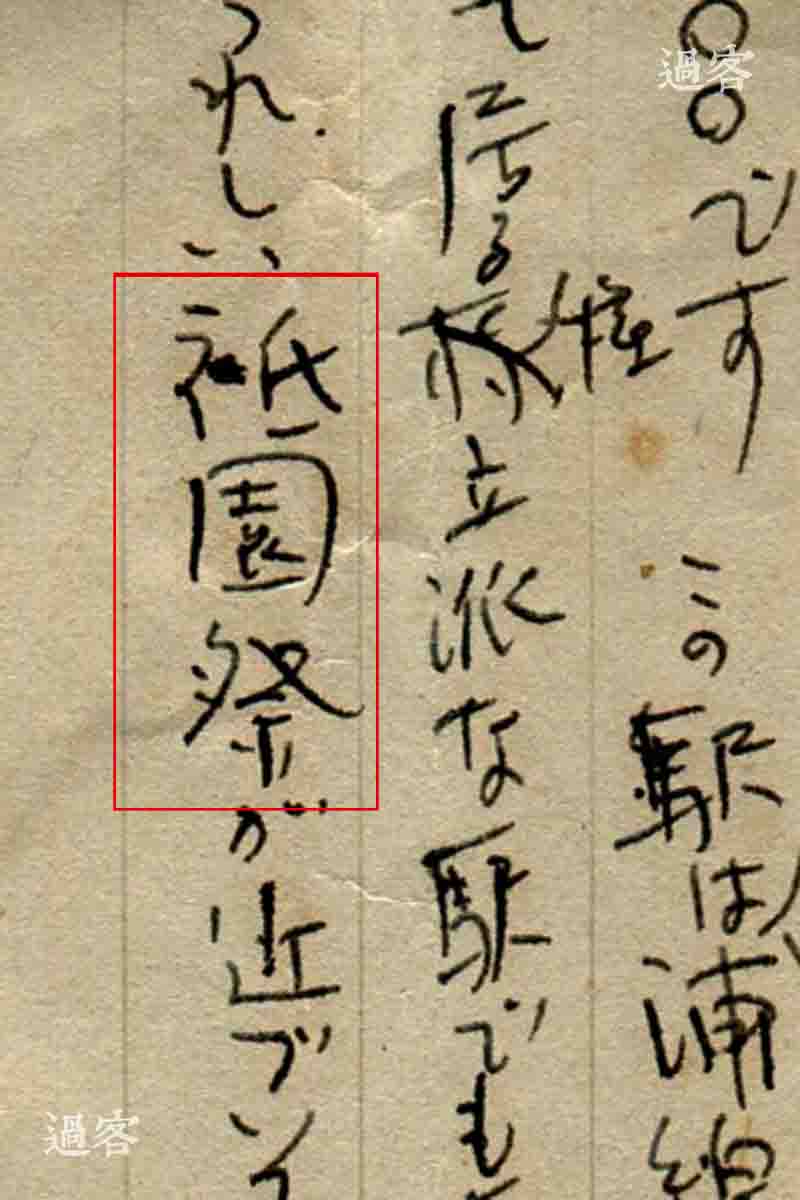 〇〇です この駅は浦
て居る様立派な駅でも
うれしい祇園祭が近づい
過客
過客